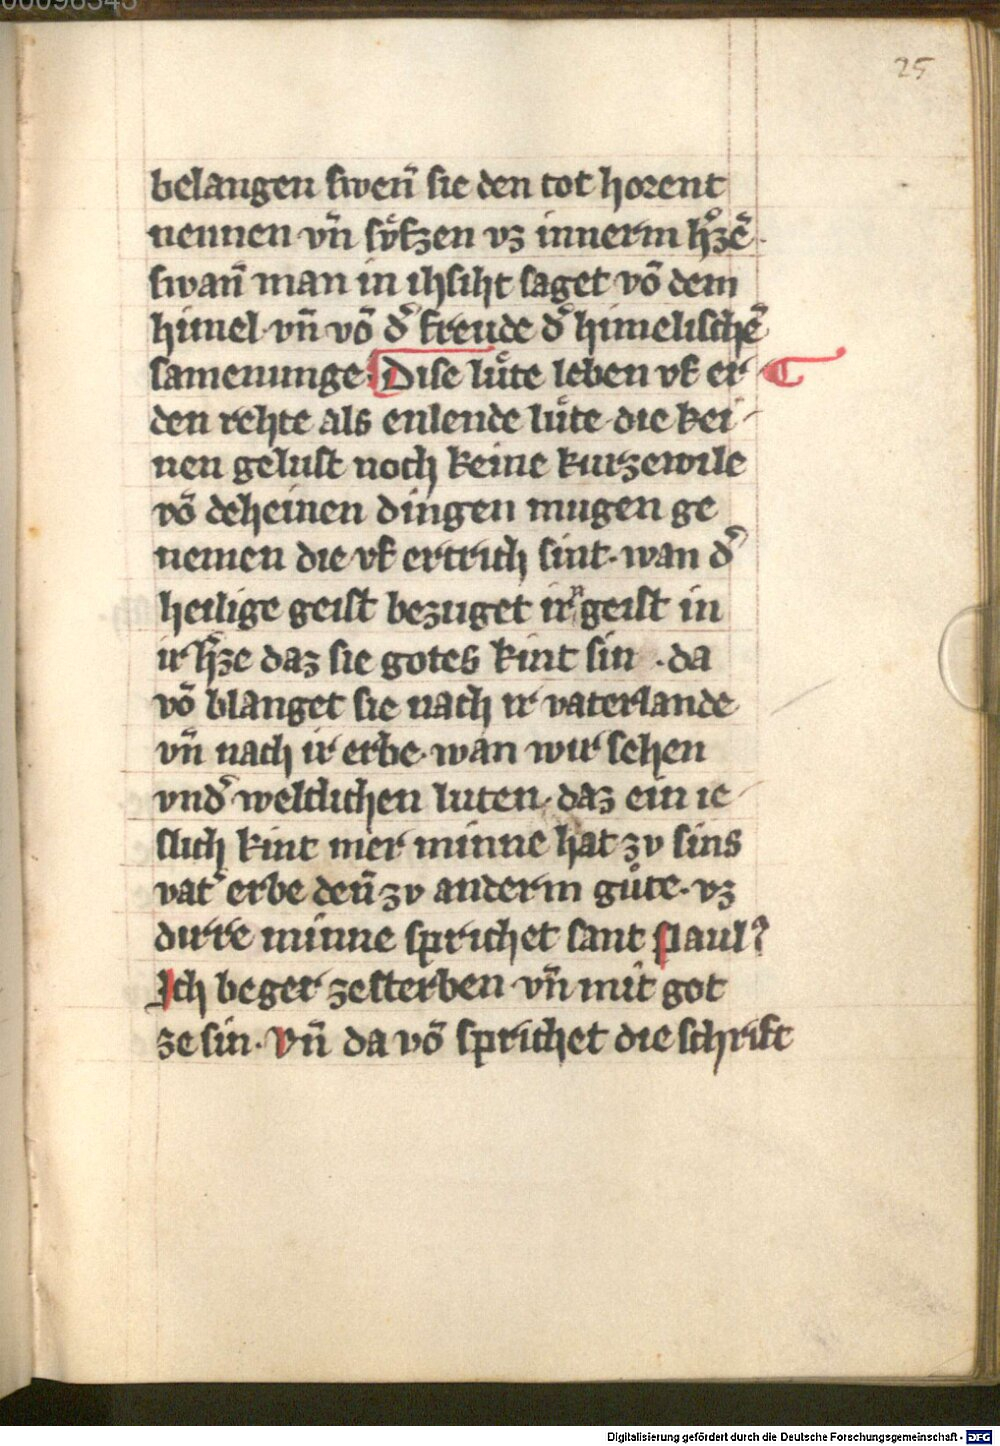 00096345
25
belangen swen̄ sie den tot horent
nennen vn̄ sv̓fzen vz innerm h̾zē.
swan̄ man in ihsiht saget vō dem
himel· vn̄ vō d̾ freude d̾ himelischē
samenunge. Dise lúte leben vf er
den rehte als enlende lúte· die kei-
nen gelust noch keine kurzewile
vō deheinen dingen mugen ge
nemen die vf ertrich sint· wan d̾
heilige geist bezuget irn geist in
ir h̾ze daz sie gotes kint sin · da
vō blanget sie nach ir vaterlande
vn̄ nach ir erbe· wan wir sehen
vnd̾ weltlichen luten· daz ein ie-
slich kint mer minne hat zv sins
vat̾ erbe den̄ zv anderm gůte· vz
dirre minne sprichet sant Paulꝰ
Ich beger zesterben vn̄ mit got
ze sin. Vn̄ da vō sprichet die schrift
Digitalisierung gefördert durch die Deutsche Forschungsgemeinschaft - DFG